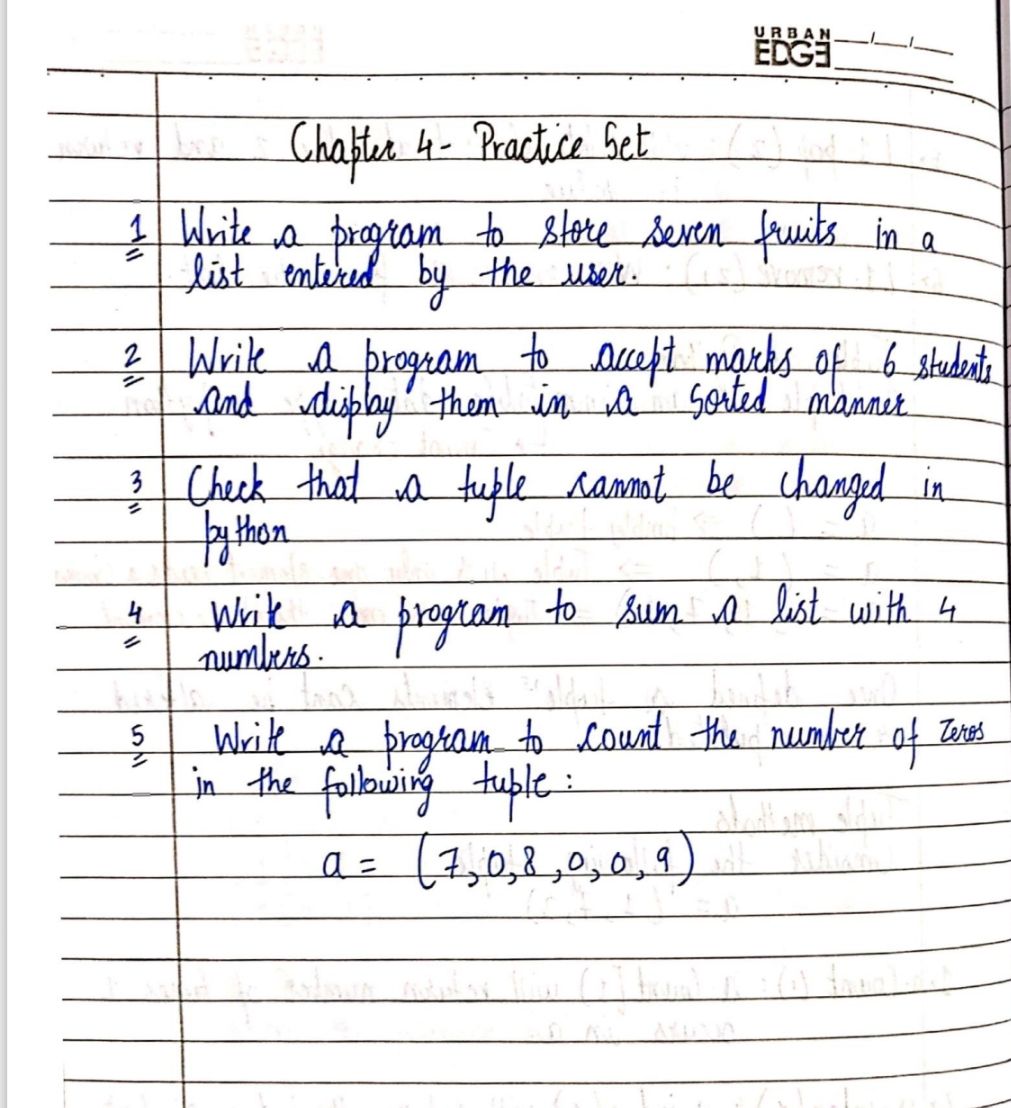 URBAN
EDGE
Chapter 4- Practice Set
1 Write a program to store seven fruits in a
list entered by the user.
2 Write a program to accept marks of 6 students
and display them in a sorted manner
3 Check that a tuple cannot be changed in
python
4 Write a program to sum a list with 4
numbers.
5 Write a program to count the number of zeros
in the following tuple :
a = (7,0,8,0,0,9)